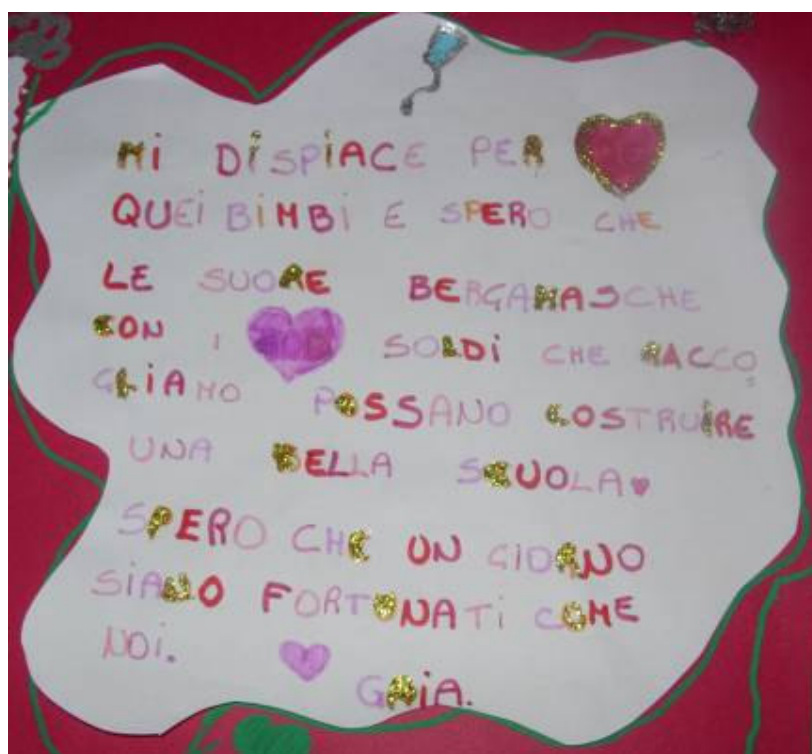 MI DISPIACE PER
QUEI BIMBI E SPERO CHE
LE SUORE BERGAMASCHE
CON I SOLDI CHE RACCO
GLIAMO POSSANO COSTRUIRE
UNA BELLA SCUOLA
SPERO CHE UN GIORNO
SIANO FORTUNATI COME
NOI.
GAIA.